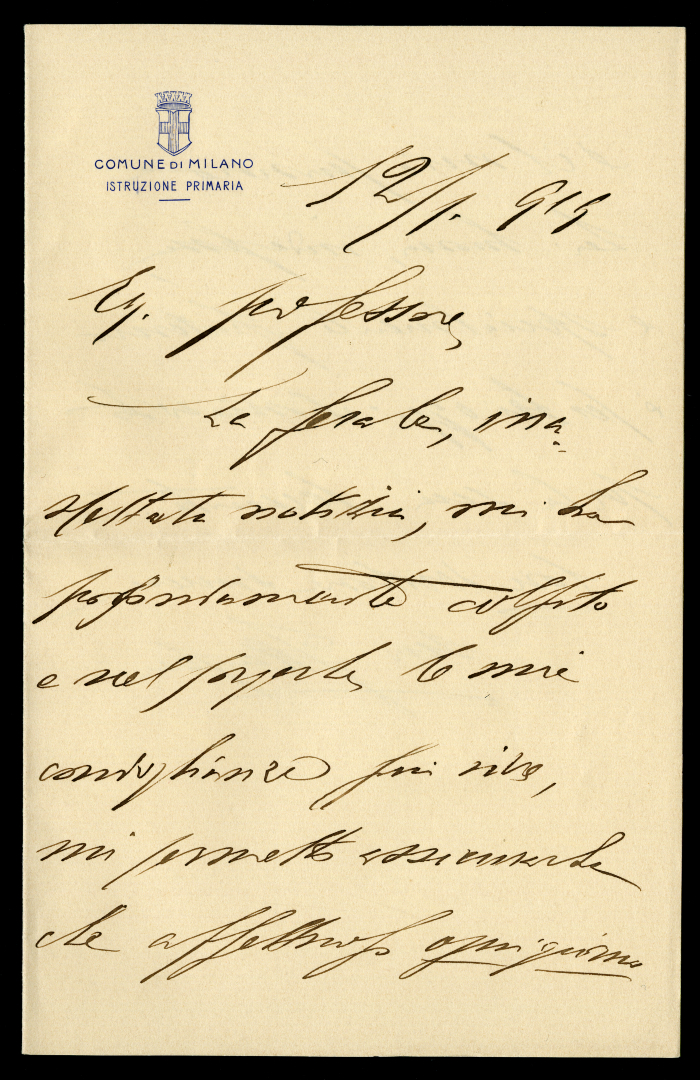 COMUNE DI MILANO
ISTRUZIONE PRIMARIA
12/1. 919
Eg. professore,
La ferale, ina-
spettata notizia, mi ha
profondamente colpito
e nel porgerLe le mie
condoglianze più vive,
mi permetto assicurarLa
che affettuoso ogni giorno